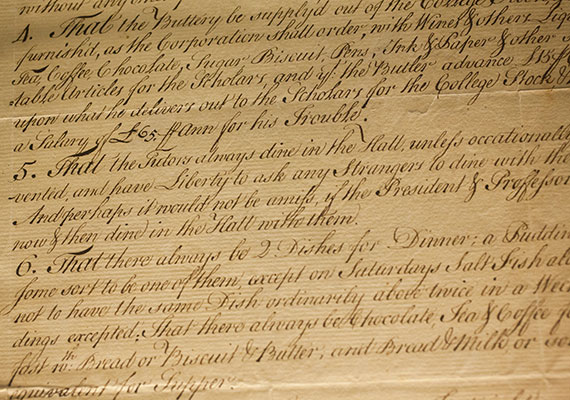 without any other
4. That the Buttery be supply'd out of the College
furnish'd, as the Corporation shall order, with Wines & others Liq
Tea, Coffee, Chocolate, Sugar Biscuit, Pens, Ink & Paper & other
table Articles for the Scholars, and yt. the Butler advance £15 ₩
upon what he delivers out to the Scholars for the College Stock &
a Salary of £65 ₩ Ann for his Trouble.
5. That the Tutors always dine in the Hall, unless occationally
vented, and have Liberty to ask any Strangers to dine with the
And perhaps it would not be amiss, if the President & Proffessor
now & then dine in the Hall with them.
6. That there always be 2 Dishes for Dinner; a Puddin
some sort to be one of them, except on Saturdays Salt Fish al
not to have the same Dish ordinarily above twice in a Wee
dings excepted: That there always be Chocolate, Tea & Coffee fo
fast wth. Bread or Biscuit & Butter; and Bread & Milk or so
equivalent for Supper.